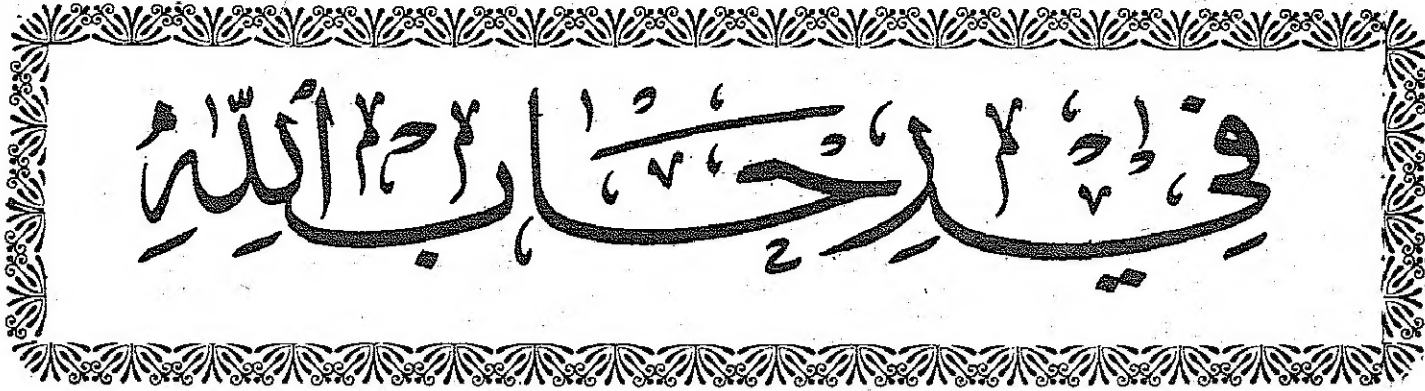 فِي رِحَابِ اللَّهِ